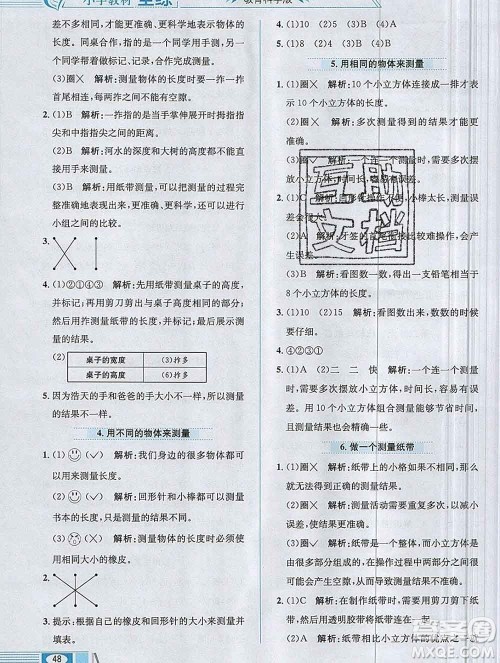 小学教材 全练
教育科学版
差不大的同学用手来测量,可以使测量结果更准
确、更科学地表示物体的长度。
同桌合作,一名同学用手测,另一名同学做标
记并观察和记录,合作完成测量。
(3)圈╳ 解析:测量物体的长度时要一拃一拃
首尾相连,每两拃之间不能有空隙。
2. (1)B 解析:一拃指的是当手掌伸展开时拇指指尖
与中指指尖之间的距离。
(2)B 解析:河水的深度和大树的高度都不方便
用手来测量。
(3)B 解析:用纸带测量,可以把测量的过程完
整地表示出来,更准确、更科学,还可以方便进行
小组之间的比较。
3.
4. (1)②①④③ 解析:先用纸带测量桌子的高度,
并标记;再用剪刀剪出与桌子高度相同的部分;
然后用拃测量纸带的长度,并标记;最后展示测
量的结果。
(2)
桌子的宽度 (3)拃多
桌子的高度 (6)拃多
5. 因为浩天的手和爸爸的手大小不一样,所以测
量的结果不一样。
4. 用不同的物体来测量
1. (1) (✓) 解析:我们身边的很多物体都可以用
来测量长度。
(2) (✓) 解析:回形针和小棒大小不一样,测
量的结果也不一样。
(3) (╳) 解析:测量物体的长度时,要用很多
相同大小的橡皮。
2.
3. 提示:根据自己的橡皮和回形针的大小来测量并
填表。
48
5. (1)圈╳
(2)4 15 10
5. 用相同的物体来测量
1. (1)圈╳ 解析:10 个小立方体连成一排才表
示 10 个小立方体的长度。
(2)圈✓ 解析:多次测量得到的结果更准确。
(3)圈╳ 解析:一个人测量时,需要多次摆放小
立方体,操作时间长。
误差会很大。
(2)A 解析:牙签的首尾相接比较难操作,会有
误差。
(3)A 解析:看图数一数,得出一支铅笔相当于
8 个小立方体的长度。
3. (1)10 (2)6 解析:看图数出来,数的时候
要仔细。
4. ④②③①
5. (1)A (2)二 二 快 解析:一个人测量时,
需要多次摆放小立方体,时间长,误差大。多次
操作时,用 10 个小立方体组合测量会减小误差,
操作也会更快。
6. 做一个测量纸带
1. (1)圈╳ 解析:纸带上的小格如果不一样大,
就无法得到正确的测量结果。
(2)圈✓ 解析:测量活动需要重复多次,以减少
误差,增强测量数据的可信度。
(3)圈✓ 解析:因为小立方体在测量较长的距
离时,操作过程中两两之间可能会有空隙,导致
测量误差较大,纸带则不会。
2. (1)C 解析:在制作纸带时,要注意标上数字,
便于读数。
(2)A 解析:测量纸带比小立方体的优点之一
互助
文档
答案圈
MXQE.COM